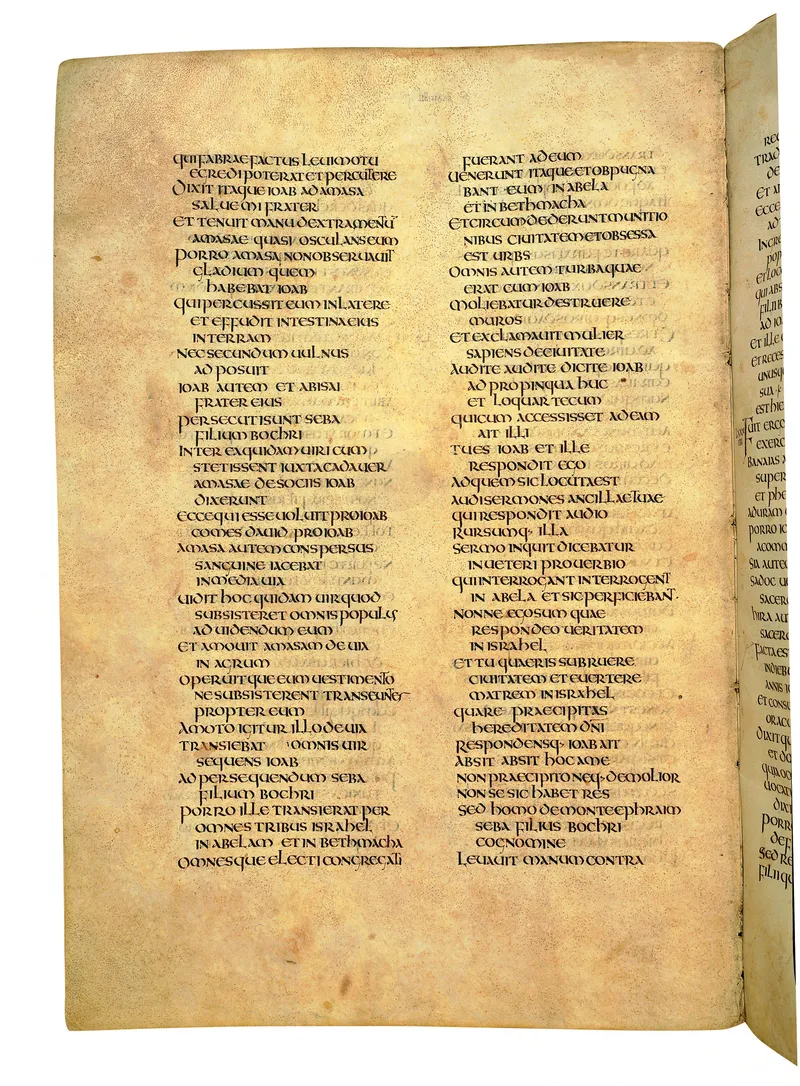 QUI FABRAE FACTUS LEUI MOTU
EGREDI POTERAT ET PERCUTERE
DIXIT ITAQUE IOAB AD AMASA
SALUE MI FRATER
ET TENUIT MANU DEXTRA MENTŪ
AMASAE QUASI OSCULANS EUM
PORRO AMASA NON OBSERUAUIT
GLADIUM QUEM
HABEBAT IOAB
QUI PERCUSSIT EUM IN LATERE
ET EFFUDIT INTESTINA EIUS
IN TERRAM
NEC SECUNDUM UULNUS
AD POSUIT
IOAB AUTEM ET ABISAI
FRATER EIUS
PERSECUTI SUNT SEBA
FILIUM BOCHRI
INTEREA QUIDAM UIRI CUM
STETISSENT IUXTA CADAUER
AMASAE DE SOCIIS IOAB
DIXERUNT
ECCE QUI ESSE UOLUIT PRO IOAB
COMES DAUID PRO IOAB
AMASA AUTEM CONSPERSUS
SANGUINE IACEBAT
IN MEDIA UIA
UIDIT HOC QUIDAM UIR QUOD
SUBSISTERET OMNIS POPULUS
AD UIDENDUM EUM
ET AMOUIT AMASAM DE UIA
IN AGRUM
OPERUITQUE EUM UESTIMENTO
NE SUBSISTERENT TRANSEUNTES
PROPTER EUM
AMOTO IGITUR ILLO DE UIA
TRANSIEBAT OMNIS UIR
SEQUENS IOAB
AD PERSEQUENDUM SEBA
FILIUM BOCHRI
PORRO ILLE TRANSIERAT PER
OMNES TRIBUS ISRAHEL
IN ABELAM ET IN BETHMACHA
OMNESQUE ELECTI CONGREGATI
FUERANT AD EUM
UENERUNT ITAQUE ET OBPUGNA
BANT EUM IN ABELA
ET IN BETHMACHA
ET CIRCUMDEDERUNT MUNITIO
NIBUS CIUITATEM ET OBSESSA
EST URBS
OMNIS AUTEM TURBA QUAE
ERAT CUM IOAB
MOLIEBATUR DESTRUERE
MUROS
ET EXCLAMAUIT MULIER
SAPIENS DE CIUITATE
AUDITE AUDITE DICITE IOAB
AD PROPINQUA HUC
ET LOQUAR TECUM
QUI CUM ACCESSISSET AD EAM
AIT ILLI
TU ES IOAB ET ILLE
RESPONDIT EGO
AD QUEM SIC LOCUTA EST
AUDI SERMONES ANCILLAE TUAE
QUI RESPONDIT AUDIO
RURSUMQ· ILLA
SERMO INQUIT DICEBATUR
IN UETERI PROUERBIO
QUI INTERROGANT INTERROGENT
IN ABELA ET SIC PERFICIEBANT·
NONNE EGO SUM QUAE
RESPONDEO UERITATEM
IN ISRAHEL
ET TU QUAERIS SUBRUERE
CIUITATEM ET EUERTERE
MATREM IN ISRAHEL
QUARE PRAECIPITAS
HEREDITATEM DN̄I
RESPONDENSQ· IOAB AIT
ABSIT ABSIT HOC A ME
NON PRAECIPITO NEQ· DEMOLIOR
NON SE SIC HABET RES
SED HOMO DE MONTE EPHRAIM
SEBA FILIUS BOCHRI
COGNOMINE
LEUAUIT MANUM CONTRA